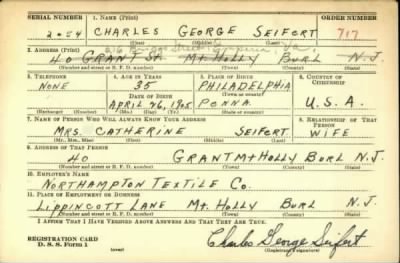 SERIAL NUMBER 1. NAME (Print) ORDER NUMBER
2054 CHARLES GEORGE SEIFORT 717
(First) (Middle) (Last)
2. ADDRESS (Print) Street, Emporia, Va.
40 GRANT St. Mt. HOLLY BURL N.J.
(Number and street or R. F. D. number) (Town) (County) (State)
3. TELEPHONE 4. AGE IN YEARS 5. PLACE OF BIRTH 6. COUNTRY OF CITIZENSHIP
NONE 35 PHILADELPHIA
DATE OF BIRTH (Town or county)
APRIL 26, 1905 PENNA. U.S.A.
(Exchange) (Number) (Mo.) (Day) (Yr.) (State or country)
7. NAME OF PERSON WHO WILL ALWAYS KNOW YOUR ADDRESS 8. RELATIONSHIP OF THAT PERSON
MRS. CATHERINE SEIFORT WIFE
(Mr., Mrs., Miss) (First) (Middle) (Last)
9. ADDRESS OF THAT PERSON
40 GRANT Mt HOLLY BURL N.J.
(Number and street or R. F. D. number) (Town) (County) (State)
10. EMPLOYER'S NAME
NORTHAMPTON TEXTILE Co.
11. PLACE OF EMPLOYMENT OR BUSINESS
LIPPINCOTT LANE Mt. HOLLY BURL N.J.
(Number and street or R. F. D. number) (Town) (County) (State)
I AFFIRM THAT I HAVE VERIFIED ABOVE ANSWERS AND THAT THEY ARE TRUE.
REGISTRATION CARD
D. S. S. Form 1 (over) Charles George Seifort
(Registrant's signature)